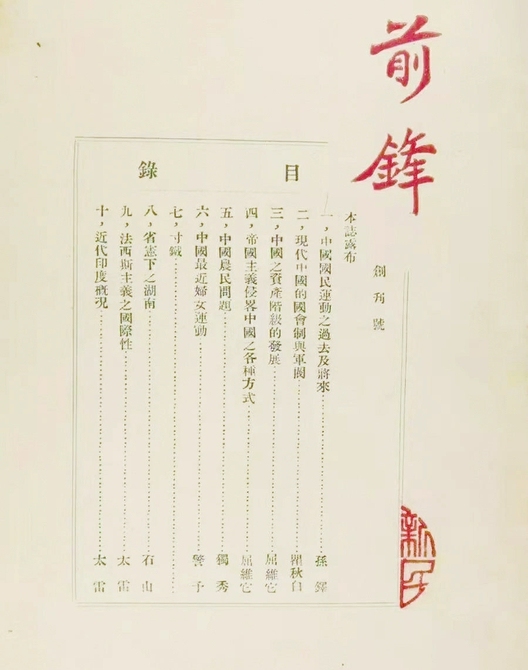 前鋒
創刊號
目錄
本誌露布
一，中國國民運動之過去及將來……孫鐸
二，現代中國的國會制與軍閥……瞿秋白
三，中國之資產階級的發展……屈維它
四，帝國主義侵畧中國之各種方式……屈維它
五，中國農民問題……獨秀
六，中國最近婦女運動……警予
七，寸鐵……
八，省憲下之湖南……石山
九，法西斯主義之國際性……太雷
十，近代印度概况……太雷